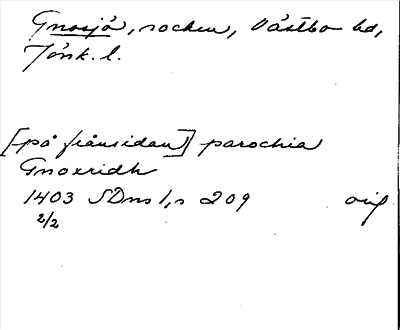 Gnosjö, socken, Västbo hd,
Jönk. l.
[på frånsidan] parochia
Gnoxridh
1403 SDns 1, s 209 orig
2/2